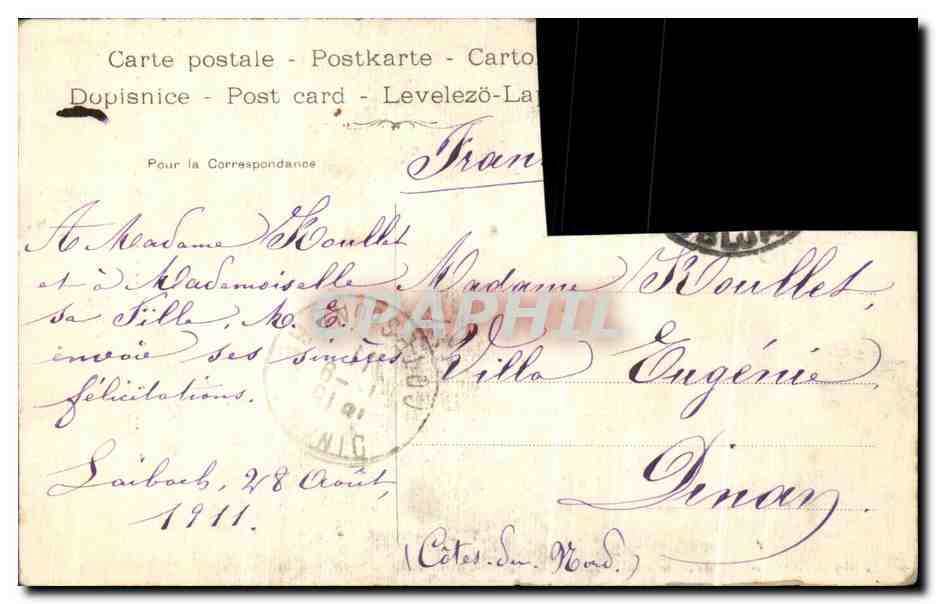 Carte postale - Postkarte - Carto
Dopisnice - Post card - Levelezö-La
Pour la Correspondance
Fran
A Madame Roullet
et à Mademoiselle
sa Fille, M. E.
envoie ses sincères
félicitations.
Laibach, 28 Août,
1911.
Madame Roullet,
Villa Eugénie,
Dinan
(Côtes-du-Nord.)
CPAPHIL